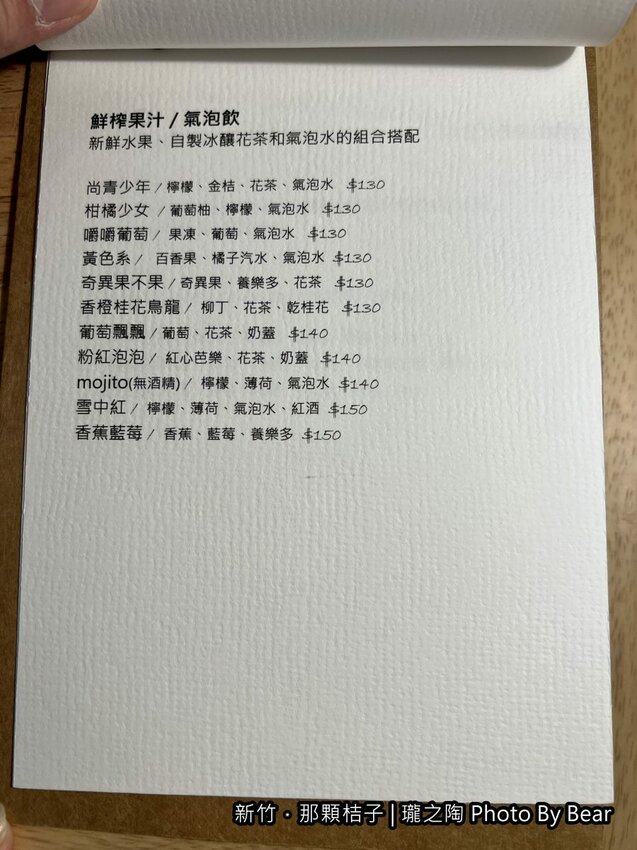 鮮榨果汁 / 氣泡飲
新鮮水果、自製冰釀花茶和氣泡水的組合搭配
尚青少年 / 檸檬、金桔、花茶、氣泡水 $130
柑橘少女 / 葡萄柚、檸檬、氣泡水 $130
嚼嚼葡萄 / 果凍、葡萄、氣泡水 $130
黃色系 / 百香果、橘子汽水、氣泡水 $130
奇異果不果 / 奇異果、養樂多、花茶 $130
香橙桂花烏龍 / 柳丁、花茶、乾桂花 $130
葡萄飄飄 / 葡萄、花茶、奶蓋 $140
粉紅泡泡 / 紅心芭樂、花茶、奶蓋 $140
mojito(無酒精) / 檸檬、薄荷、氣泡水 $140
雪中紅 / 檸檬、薄荷、氣泡水、紅酒 $150
香蕉藍莓 / 香蕉、藍莓、養樂多 $150
新竹‧那顆桔子 | 瓏之陶 Photo By Bear